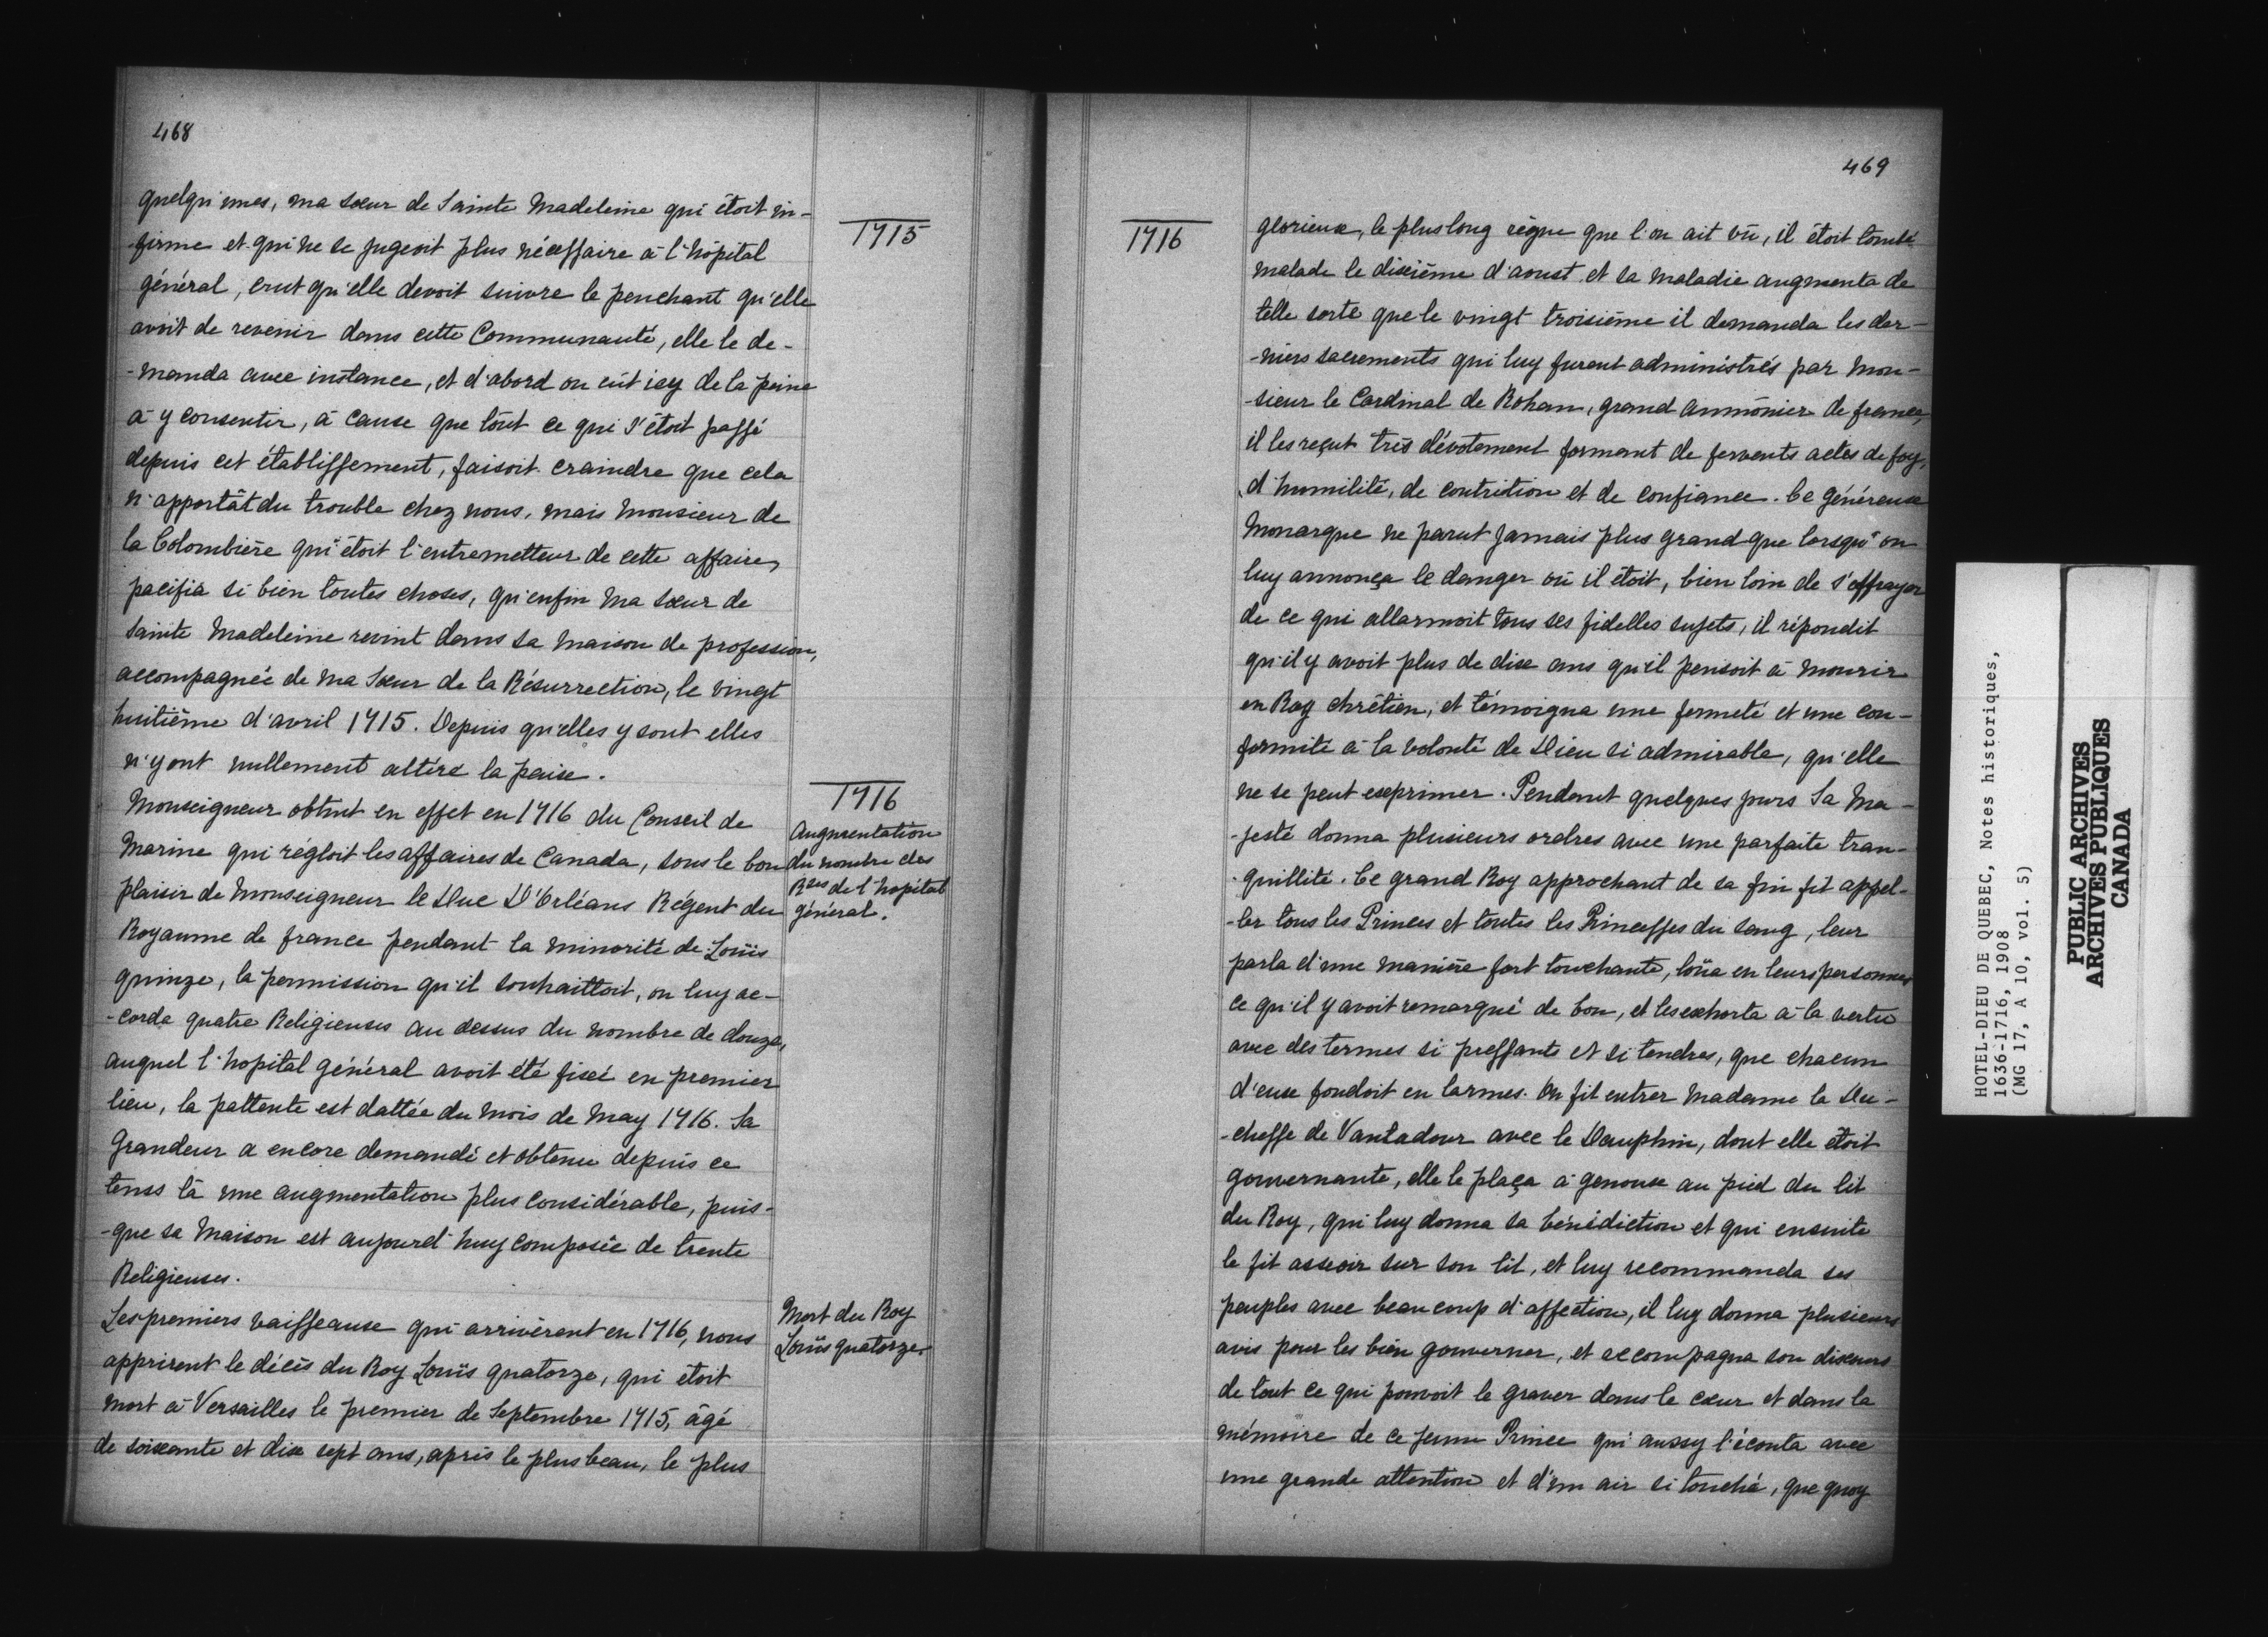 468
quelqu'unes, ma sœur de Sainte Madeleine qui étoit in-
-firme et qui ne se jugeoit plus nécessaire à l'hôpital
général, crut qu'elle devoit suivre le penchant qu'elle
avoit de revenir dans cette Communauté, elle le de-
-manda avec instance, et d'abord on eût icy de la peine
à y consentir, à cause que tout ce qui s'étoit passé
depuis cet établissement, faisoit craindre que cela
n'apportât du trouble chez nous, mais monsieur de
la Colombière qui étoit l'entremetteur de cette affaire,
pacifia si bien toutes choses, qu'enfin ma sœur de
sainte Madeleine revint dans sa maison de profession,
accompagnée de ma Sœur de la Résurrection, le vingt
huitième d'avril 1715. Depuis qu'elles y sont elles
n'y ont nullement altéré la paix.
Monseigneur obtint en effet en 1716 du Conseil de
Marine qui régloit les affaires de Canada, sous le bon
plaisir de Monseigneur le Duc D'Orléans Régent du
Royaume de france pendant la minorité de Loüis
quinze, la permission qu'il souhaittoit, on luy ac-
-corda quatre Religieuses au dessus du nombre de douze,
auquel l'hopital général avoit été fixé en premier
lieu, la pattente est dattée du mois de May 1716. Sa
Grandeur a encore demandé et obtenu depuis ce
tems là une augmentation plus considérable, puis-
-que sa maison est aujourd'huy composée de trente
Religieuses.
Les premiers vaisseaux qui arrivèrent en 1716, nous
apprirent le décès du Roy Loüis quatorze, qui étoit
mort à Versailles le premier de Septembre 1715, âgé
de soixante et dix sept ans, après le plus beau, le plus
1715
1716
Augmentation
du nombre des
Rses de l'hopital
général.
Mort du Roy
Loüis quatorze.
469
1716
glorieux, le plus long règne que l'on ait vû, il étoit tombé
malade le dixième d'aoust et sa maladie augmenta de
telle sorte que le vingt troisième il demanda les der-
-niers sacrements qui luy furent administrés par mon-
-sieur le Cardinal de Rohan, grand Aumônier de france,
il les reçut très dévotement formant de fervents actes de foy,
d'humilité, de contrition et de confiance. Ce généreux
Monarque ne parut jamais plus grand que lorsqu'on
luy annonça le danger où il étoit, bien loin de s'effrayer
de ce qui allarmoit tous ses fidelles sujets, il répondit
qu'il y avoit plus de dix ans qu'il pensoit à mourir
en Roy chrétien, et témoigna une fermeté et une con-
formité à la volonté de Dieu si admirable, qu'elle
ne se peut exprimer. Pendant quelques jours Sa Ma-
-jesté donna plusieurs ordres avec une parfaite tran-
-quillité. Ce grand Roy approchant de sa fin fit appel-
-ler tous les Princes et toutes les Princesses du sang, leur
parla d'une manière fort touchante, loüa en leurs personnes
ce qu'il y avoit remarqué de bon, et les exhorta à la vertu
avec des termes si pressants et si tendres, que chacun
d'eux fondoit en larmes. On fit entrer Madame la Du-
-chesse de Vantadour avec le Dauphin, dont elle étoit
gouvernante, elle le plaça à genoux au pied du lit
du Roy, qui luy donna sa bénédiction et qui ensuite
le fit asseoir sur son lit, et luy recommanda ses
peuples avec beaucoup d'affection, il luy donna plusieurs
avis pour les bien gouverner, et accompagna son discours
de tout ce qui pouvoit le graver dans le cœur et dans la
mémoire de ce jeune Prince qui aussy l'écouta avec
une grande attention et d'un air si touché, que quoy
HOTEL-DIEU DE QUEBEC, Notes historiques,
1636-1716, 1908
(MG 17, A 10, vol. 5)
PUBLIC ARCHIVES
ARCHIVES PUBLIQUES
CANADA